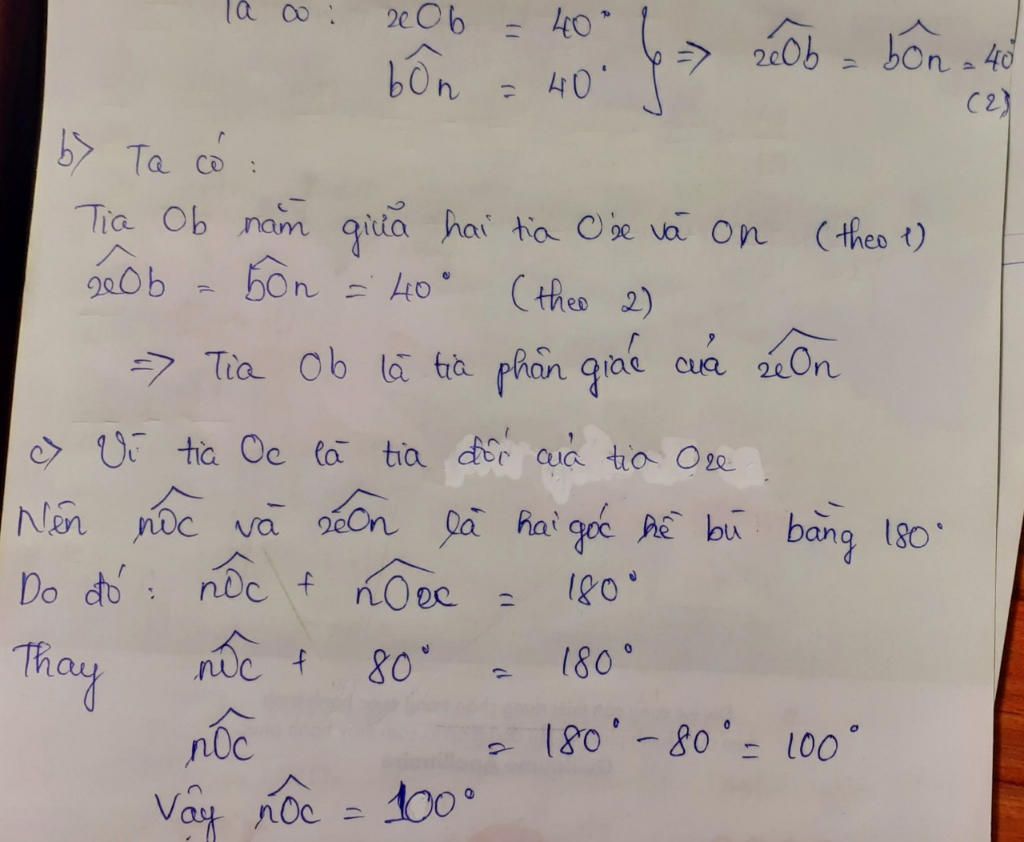 Ta có : xOb = 40°
bÔn = 40° } => xÔb = bÔn = 40°
(2)
b> Ta có :
Tia Ob nằm giữa hai tia Ox và On (theo 1)
xÔb = bÔn = 40° (theo 2)
=> Tia Ob là tia phân giác của xÔn
c> Vì tia Oc là tia đối của tia Ox
Nên nÔc và xÔn là hai góc kề bù bằng 180°
Do đó : nÔc + nÔx = 180°
Thay nÔc + 80° = 180°
nÔc = 180° - 80° = 100°
Vậy nÔc = 100°